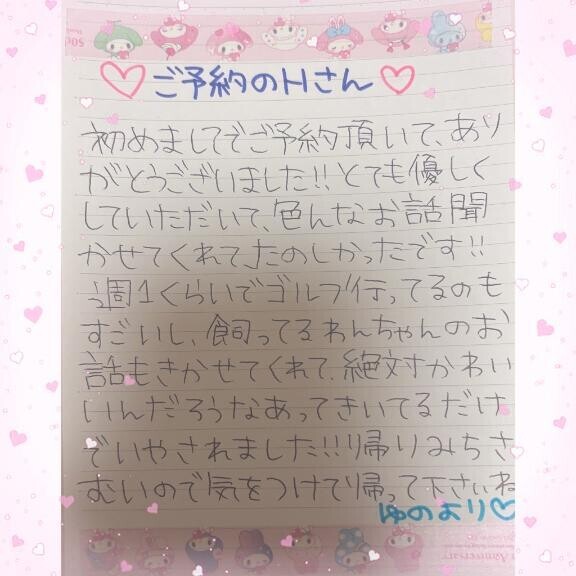 ♡ご予約のHさん♡
初めましてでご予約頂いて、あり
がとうございました!!とても優しく
していただいて、色んなお話聞
かせてくれてたのしかったです!!
週1くらいでゴルフ行ってるのも
すごいし、飼ってるわんちゃんのお
話もきかせてくれて、絶対かわい
いんだろうなあってきいてるだけ
でいやされました!!!帰りみちさ
むいので気をつけて帰って下さいね
ゆのより♡